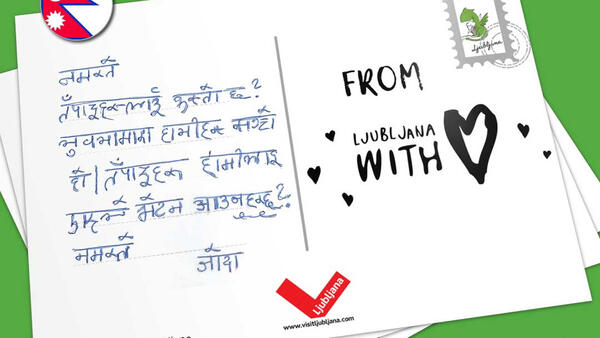 नमस्ते
तँपाइहरुलाई कस्तो छ?
हामीहरु सन्चो
छौ। तँपाइहरु हामीलाइ
भेटन आउनुहुन्छ?
नमस्ते
FROM
LJUBLJANA
WITH
Ljubljana
Ljubljana
www.visitljubljana.com